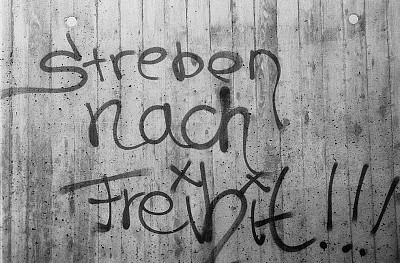 Streben
nach
Freihit!!!